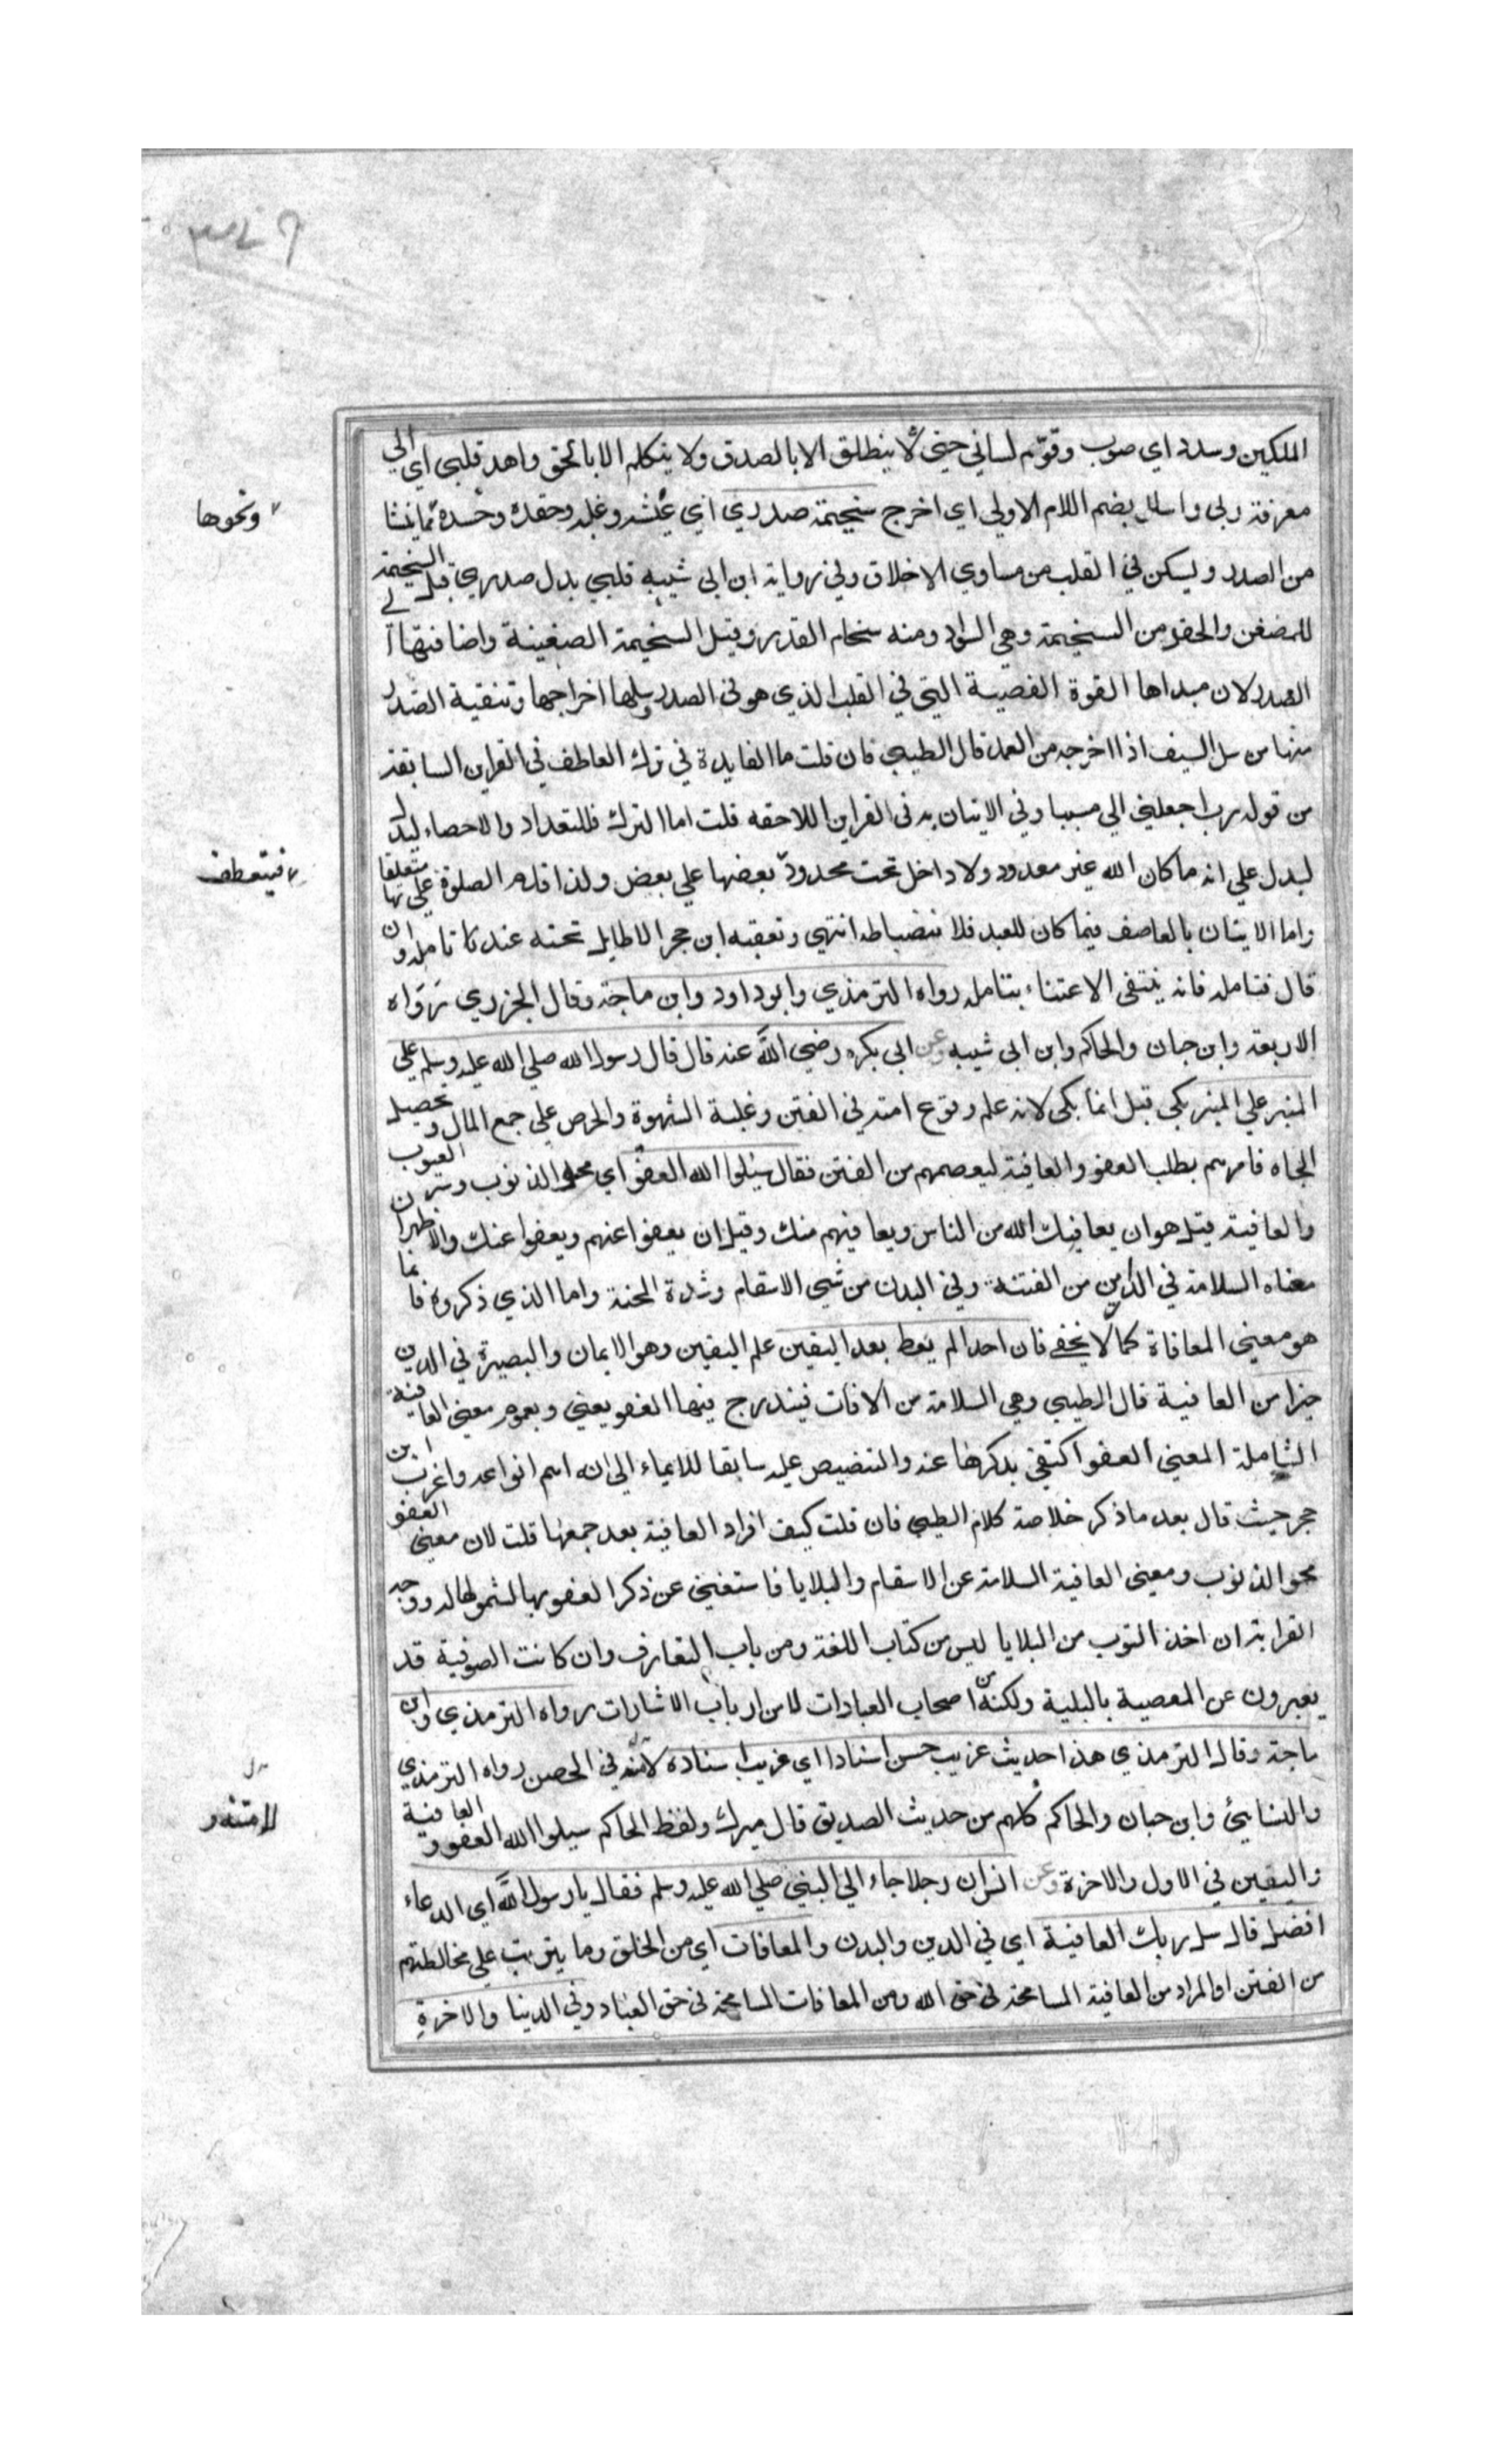 الملكين وسدد اي صوب وقوّم لساني حتي لا ينطلق الا بالصدق ولا يتكلم الا بالحق واهد قلبي اي الي
معرفة ربي واسلل بضم اللام الاولي اي اخرج سخيمة صدري اي غشه وغله وحقده وحسده مما ينشا
ونحوها
من الصدر ويسكن في القلب من مساوي الاخلاق وفي رواية ابن ابي شيبه قلبي بدل صدري قيل السخيمة
للضغن والحقد من السخيمة وهي السواد ومنه سخام القدر وقيل السخيمة الضغينة واضافتها الي
الصدر لان مبداها القوة الغضبية التي في القلب الذي هو في الصدر وسلها اخراجها وتنقية الصدر
منها من سل السيف اذا اخرجه من الغمد قال الطيبي فان قلت ما الفايدة في ترك العاطف في القراين السابقة
من قوله رب اجعلني الي مسببا وفي الاتيان به في القراين اللاحقه قلت اما الترك فللتعداد والاحصاء ليدل
ليدل علي انه ما كان الله غير معدود ولا داخل تحت محدود بعضها علي بعض ولذا قدم الصلوة علي متعلقاتها
فينعطف
واما الاتيان بالعاطف فيما كان للعبد فلانضباطه انتهي وتعقبه ابن حجر لا طايل تحته عند تامله وان
قال فتامله فانه ينتفي الاعتناء بتامله رواه الترمذي وابو داود وابن ماجة وقال الجزري رواه
الاربعة وابن حبان والحاكم وابن ابي شيبه وعن ابي بكره رضي الله عنه قال قال رسول الله صلي الله عليه وسلم علي
المنبر علي المنبر بكي قيل انما بكي لانه علم وقوع امته في الفتن وغلبة الشهوة والحرص علي جمع المال وتحصيل
الجاه فامرهم بطلب العفو والعافية ليعصمهم من الفتن فقال سلوا الله العفو اي محو الذنوب وستر العيوب
والعافية قيل هو ان يعافيك الله من الناس ويعافيهم منك وقيل ان يعفوا عنهم ويعفوا عنك والاظهر ان
معناه السلامة في الدين من الفتنة وفي البدن من سيئ الاسقام وشدة المحنة واما الذي ذكروه فانما
هو معني المعافاة كما لا يخفي فان احدا لم يعط بعد اليقين علم اليقين وهو الايمان والبصيرة في الدين
خيرا من العافية قال الطيبي وهي السلامة من الافات فيندرج فيها العفو يعني وبعموم معني العافية
الشاملة المعني العفو اكتفي بذكرها عنه والتنصيص عليه سابقا للايماء الي انه اهم انواعه واغرب ابن
حجر حيث قال بعد ما ذكر خلاصة كلام الطيبي فان قلت كيف افراد العافية بعد جمعها قلت لان معني العفو
محو الذنوب ومعني العافية السلامة عن الاسقام والبلايا فاستغني عن ذكر العفو بها لشمولها له ووجه
الغرابة ان اخذ الذنوب من البلايا ليس من كتاب اللغة ومن باب التعارف وان كانت الصوفية قد
يعبرون عن المعصية بالبلية ولكنه من اصحاب العبادات لا من ارباب الاشارات رواه الترمذي وابن
ماجة وقال الترمذي هذا حديث غريب حسن اسنادا اي غريب اسناده لانه في الحصن رواه الترمذي
لا متنه و
والنسايئ وابن حبان والحاكم كلهم من حديث الصديق قال ميرك ولفظ الحاكم سيلوا الله العفو والعافية
واليقين في الاول والاخرة وعن انس ان رجلا جاء الي النبي صلي الله عليه وسلم فقال يا رسول الله اي الدعاء
افضل قال سل ربك العافية اي في الدين والبدن والمعافات اي من الخلق وما يترتب علي مخالطتهم
من الفتن او المراد من العافية المسامحة في حق الله ومن المعافات المسامحة في حق العباد وفي الدنيا والاخرة